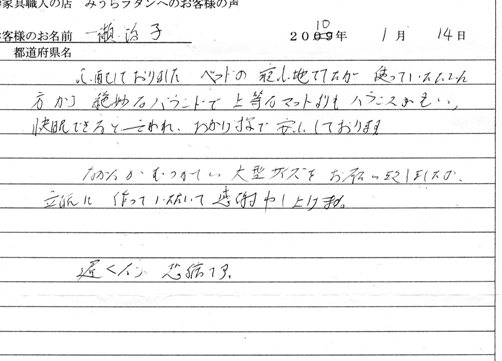 家具職人の店 みうらフタンへのお客様の声
お客様のお名前 一瀬 治子 2010年 1月 14日
都道府県名
心配しておりました ベットの寝心地でしたが 使っていただいた
方から 絶妙なバウンドで 上等なマットよりも バランスがもいい、
快眠できると言われ、おかげ様で安心しております
なかなか むつかしい 大型サイズを お願い致しましたが、
立派に 作っていただいて 感謝申し上げます。
遅くなり 恐縮です。